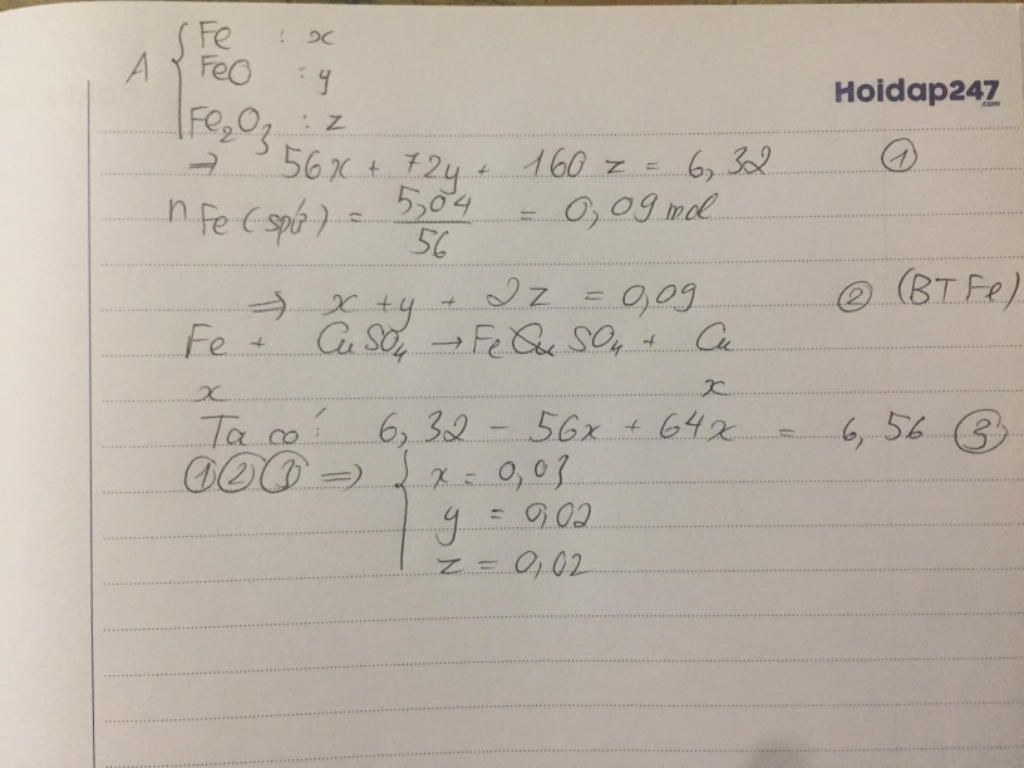 Fe : x
A { FeO : y
Hoidap247
.com
Fe₂O₃ : z
⇒ 56x + 72y + 160 z = 6,32 ①
n Fe (spứ) = 5,04 / 56 = 0,09 mol
⇒ x + y + 2z = 0,09 ② (BT Fe)
Fe + CuSO₄ → Fe SO₄ + Cu
x x
Ta có: 6,32 - 56x + 64x = 6,56 ③
①②③ ⇒ { x = 0,03
y = 0,02
z = 0,02